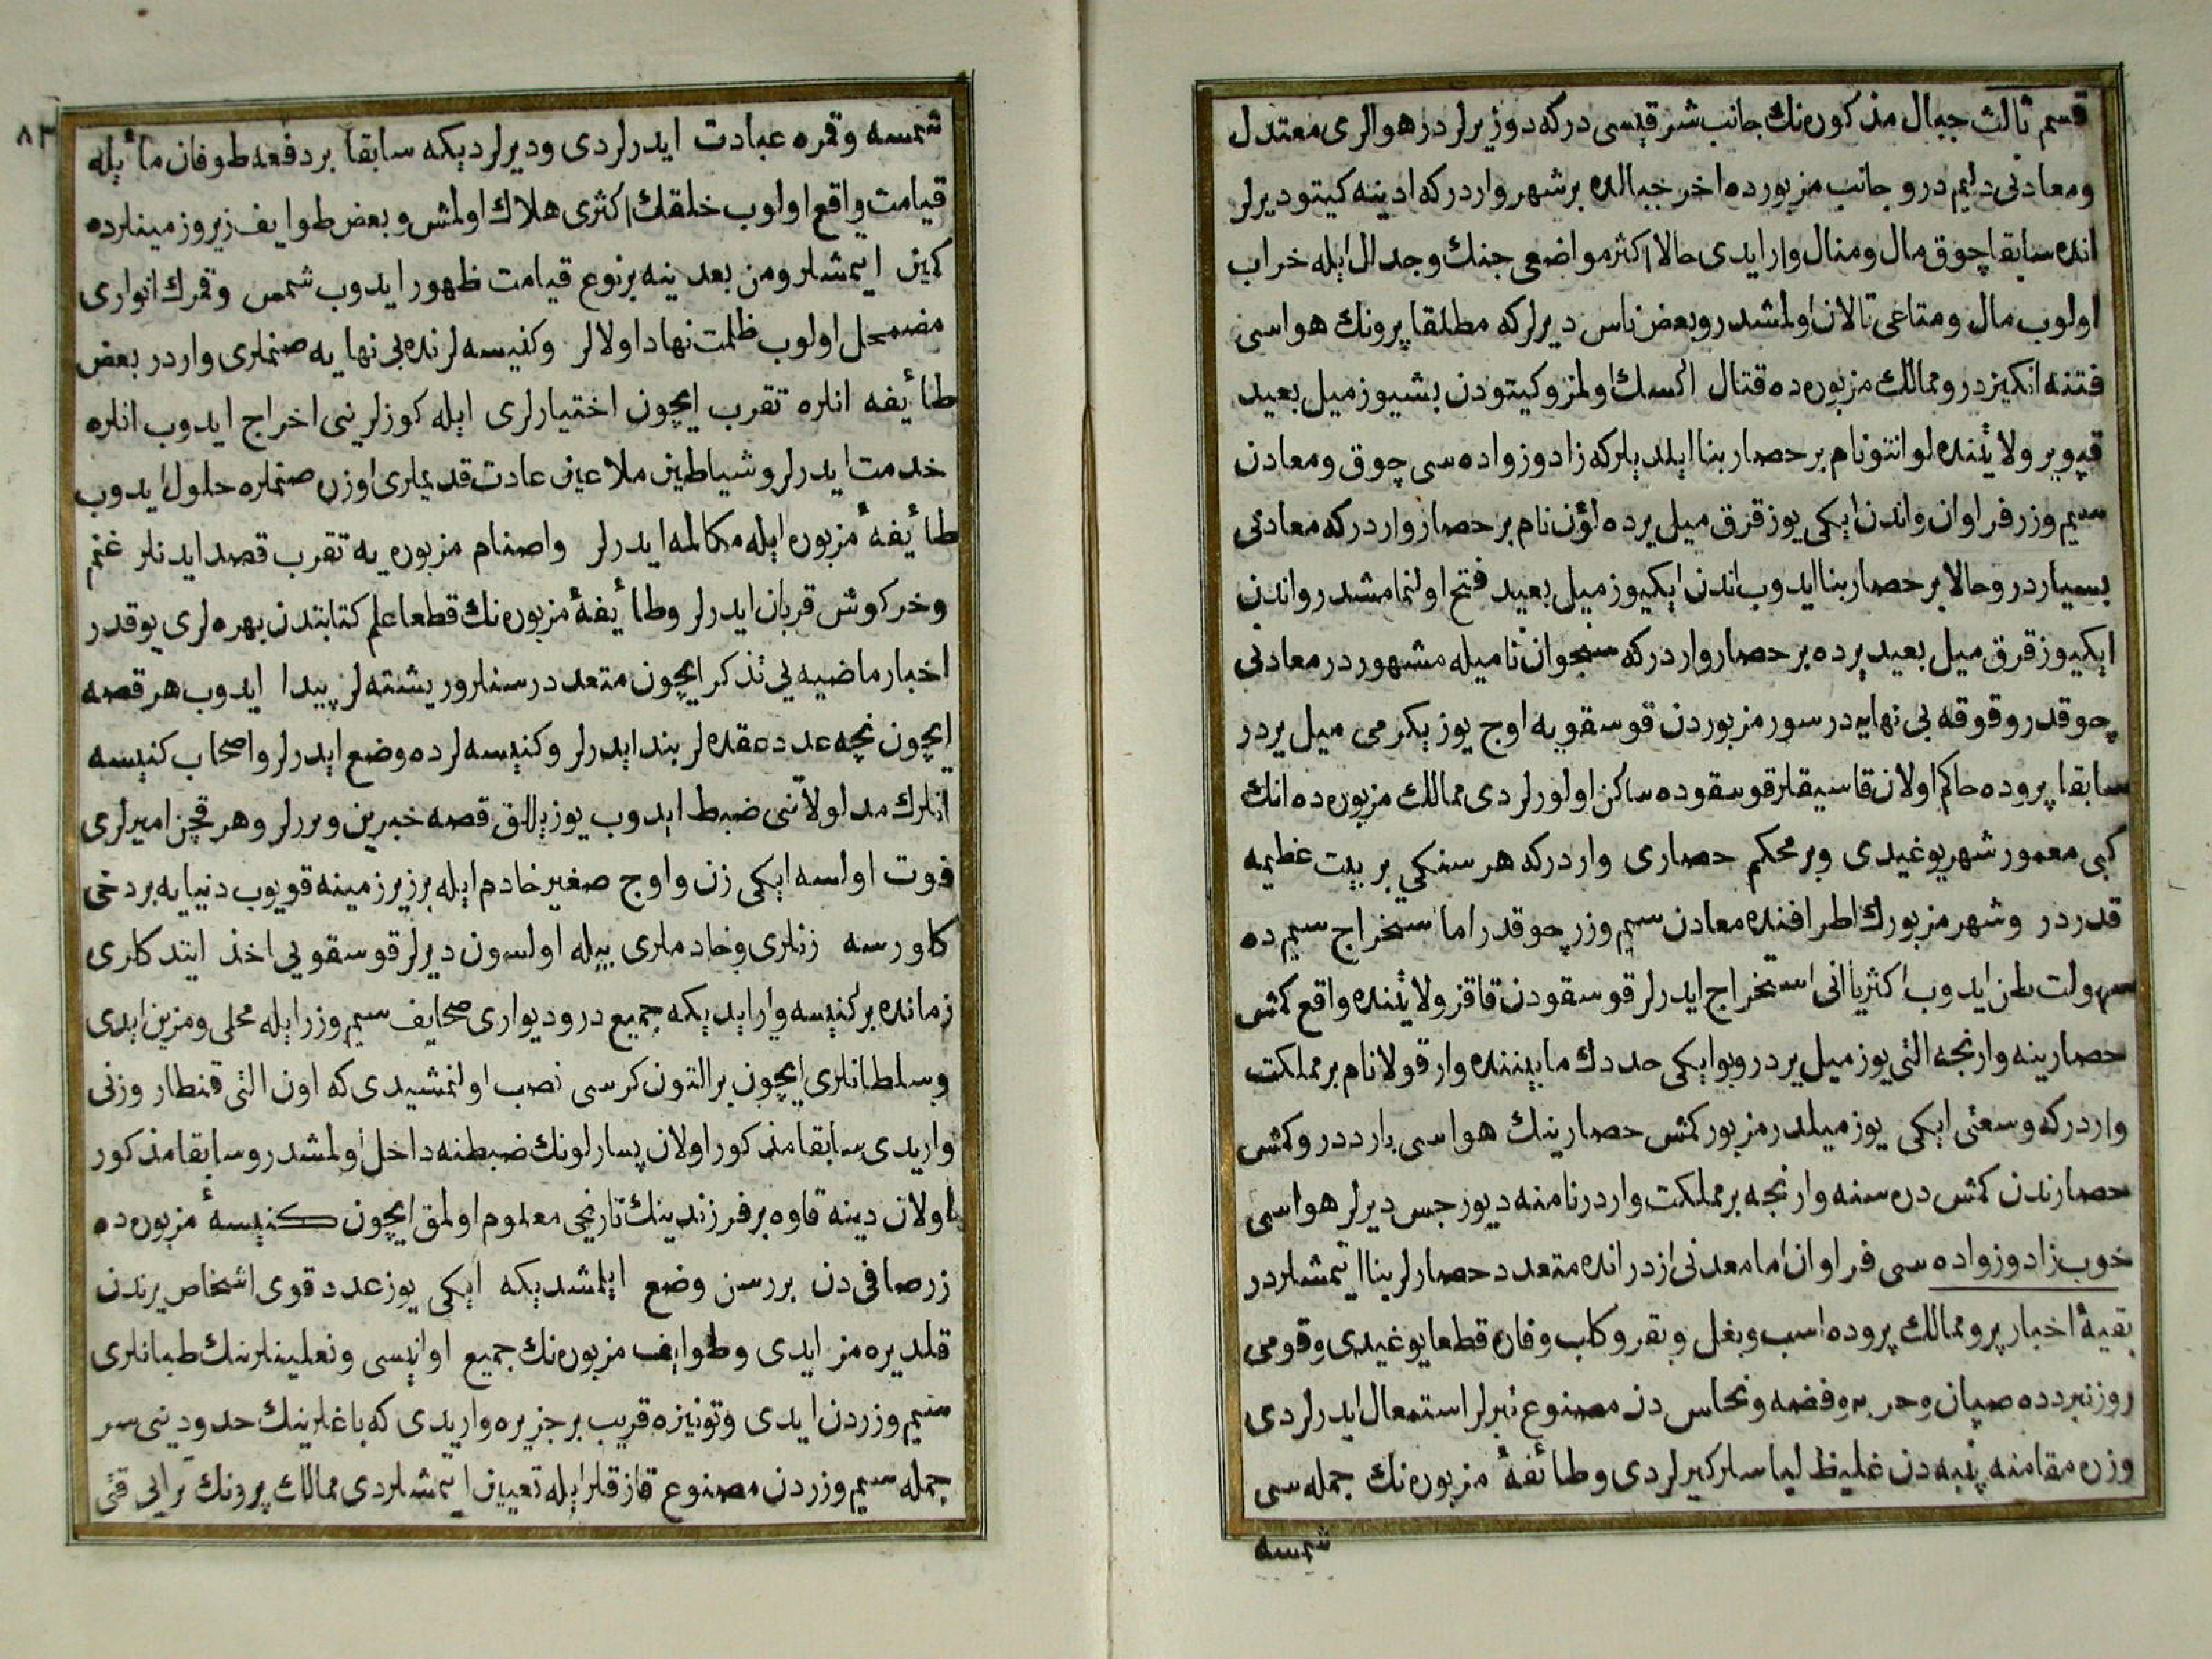 قسم ثالث جبال مذكوره‌نك جانب شرقيسى دركه دوز يرلر در هوالرى معتدل
ومعادنى دايم در و جانب مزبورده اخر جبالده بر شهر واردر كه ادينه كيتو ديرلر
انده سابقا چوق مال ومنال وار ايدى حالا اكثر مواضعى جنك وجدال ايله خراب
اولوب مال ومتاعى تالان اولمشدر وبعض ناس ديرلر كه مطلقا پرونك هواسى
فتنه انكيزدر وممالك مزبوره ده قتال اكسك اولمز وكيتودن بشيوز ميل بعيد
قپوير ولايتنده لوانتو نام بر حصار بنا ايلديلر كه زاد وزواده سى چوق ومعادن
سيم وزر فراوان واندن ايكى يوز قرق ميل يرده لؤن نام بر حصار واردر كه معادنى
بسياردر وحالا بر حصار بنا ايدوب اندن ايكيوز ميل بعيد فتح اولنمامشدر واندن
ايكيوز قرق ميل بعيد يرده بر حصار واردر كه سنجوان ناميله مشهوردر معادنى
چوقدر وقوقه بى نهايه در سور مزبوردن قوسقويه اوچ يوز يكرمى ميل يردر
سابقا پروده حاكم اولان قاسيقلر قوسقوده ساكن اولورلردى ممالك مزبوره ده انك
كبى معمور شهر يوغيدى وبر محكم حصارى واردر كه هر سنكى بر بيت عظيمه
قدردر وشهر مزبورك اطرافنده معادن سيم وزر چوقدر اما استخراج سيم ده
سهولت ظن ايدوب اكثريا انى استخراج ايدرلر قوسقودن قاقز ولايتنده واقع كمش
حصارينه وارنجه التى يوز ميل يردر وبو ايكى حددك مابيننده وارقولا نام بر مملكت
واردر كه وسعتى ايكى يوز ميلدر مزبور كمش حصارينك هواسى بارددر وكمش
حصارندن كمش دره سنه وارنجه بر مملكت واردر نامنه ديورجس ديرلر هواسى
خوب زاد وزواده سى فراوان اما معدنى ازدر انده متعدد حصارلر بنا ايتمشلردر
بقيۀ اخبار پرو ممالك پروده اسب وبغل وبقر وكلب وفاره قطعا يوغيدى وقومى
روز نبردده صپان وحربه وفضه ونحاس دن مصنوع تبرلر استعمال ايدرلردى
وزره مقامنه پنبه دن غليظ لباسلر كيرلردى وطائفۀ مزبوره نك جمله سى
شمسه
٨٣
شمسه وقمره عبادت ايدرلردى وديرلرديكه سابقا بر دفعه طوفان ماء ايله
قيامت واقع اولوب خلقك اكثرى هلاك اولمش وبعض طوايف زير وزمينلرده
كمين ايتمشلر ومن بعد ينه بر نوع قيامت ظهور ايدوب شمس وقمرك انوارى
مضمحل اولوب ظلمت نهاد اولالر وكنيسه لرنده بى نهايه صنملرى واردر بعض
طائفه انلره تقرب ايچون اختيارلرى ايله كوزلرينى اخراج ايدوب انلره
خدمت ايدرلر وشياطين ملاعين عادت قديملرى اوزره صنملره حلول ايدوب
طائفۀ مزبوره ايله مكالمه ايدرلر واصنام مزبوره يه تقرب قصد ايدنلر غنم
وخركوش قربان ايدرلر وطائفۀ مزبوره نك قطعا علم كتابتدن بهره لرى يوقدر
اخبار ماضيه يى تذكر ايچون متعدد رسنلر وريشته لر پيدا ايدوب هر قصه
ايچون نچه عدد عقده لر بند ايدرلر وكنيسه لرده وضع ايدرلر واصحاب كنيسه
انلرك مدلولاتنى ضبط ايدوب يوز ييللق قصه خبرين ويررلر وهر قچن اميرلرى
فوت اولسه ايكى زن واوچ صغير خادم ايله بر زير زمينه قويوب دنيايه بر دخى
كلورسه زنلرى وخادملرى بيله اولسون ديرلر قوسقويى اخذ ايتدكلرى
زمانده بر كنيسه وارايديكه جميع در وديوارى صحايف سيم وزر ايله محلى ومزين ايدى
وسلطانلرى ايچون بر التون كرسى نصب اولنمشيدى كه اون التى قنطار وزنى
واريدى سابقا مذكور اولان پسارلونك ضبطنه داخل اولمشدر وسابقا مذكور
اولان دينه قاوه بر فرزندينك تاريخى معلوم اولمق ايچون كنيسۀ مزبوره ده
زر صافى دن بر رسن وضع ايلمشديكه ايكى يوز عدد قوى اشخاص يرندن
قلديره مز ايدى وطوايف مزبوره نك جميع اوانيسى ونعلينلرينك طبانلرى
سيم وزردن ايدى وتونيزه قريب بر جزيره واريدى كه باغلرينك حدودينى سر
جمله سيم وزردن مصنوع قازقلر ايله تعيين ايتمشلردى ممالك پرونك ترابى قتى